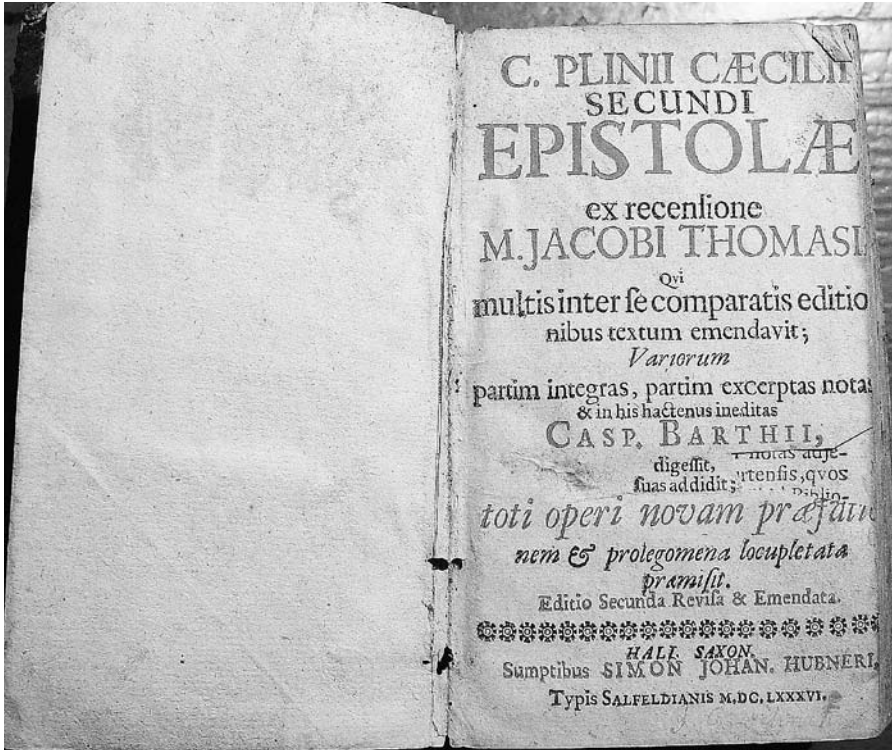 C. PLINII CÆCILII
SECUNDI
EPISTOLÆ
ex recenſione
M. JACOBI THOMASI
Qvi
multis inter ſe comparatis editio
nibus textum emendavit;
Variorum
partim integras, partim excerptas notas
& in his hactenus ineditas
CASP. BARTHII,
notas adje-
digeſſit,
rtenſis, qvos
ſuas addidit;
Biblio-
toti operi novam præfatio
nem & prolegomena locupletata
præmiſit.
Editio Secunda Reviſa & Emendata.
HALI. SAXON.
Sumptibus SIMON JOHAN. HUBNERI,
Typis SALFELDIANIS M.DC.LXXXVI.